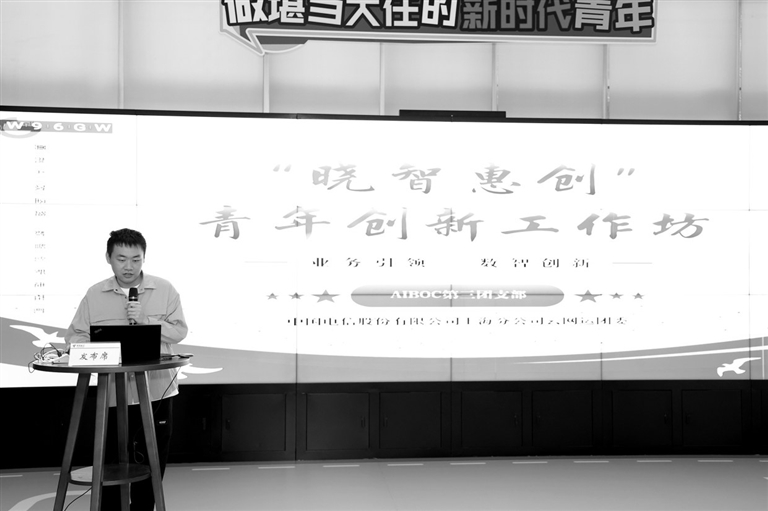 做堪当大任的新时代青年
W96GW
“晓智惠创”
青年创新工作坊
业务引领 数智创新
AIBOC第三团支部
中国电信股份有限公司上海分公司云网运团委
发布席